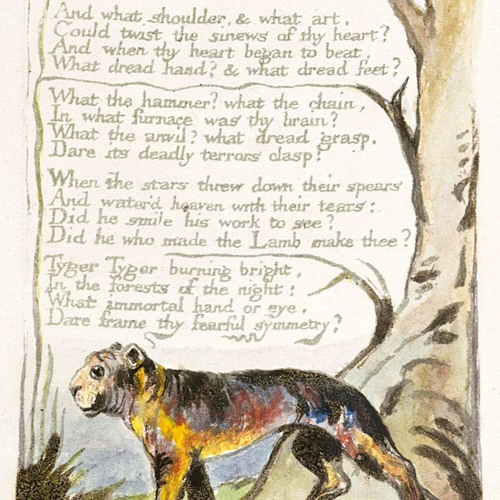 And what shoulder, & what art,
Could twist the sinews of thy heart?
And when thy heart began to beat,
What dread hand? & what dread feet?
What the hammer? what the chain,
In what furnace was thy brain?
What the anvil? what dread grasp,
Dare its deadly terrors clasp!
When the stars threw down their spears
And water'd heaven with their tears:
Did he smile his work to see?
Did he who made the Lamb make thee?
Tyger Tyger burning bright,
In the forests of the night:
What immortal hand or eye,
Dare frame thy fearful symmetry?